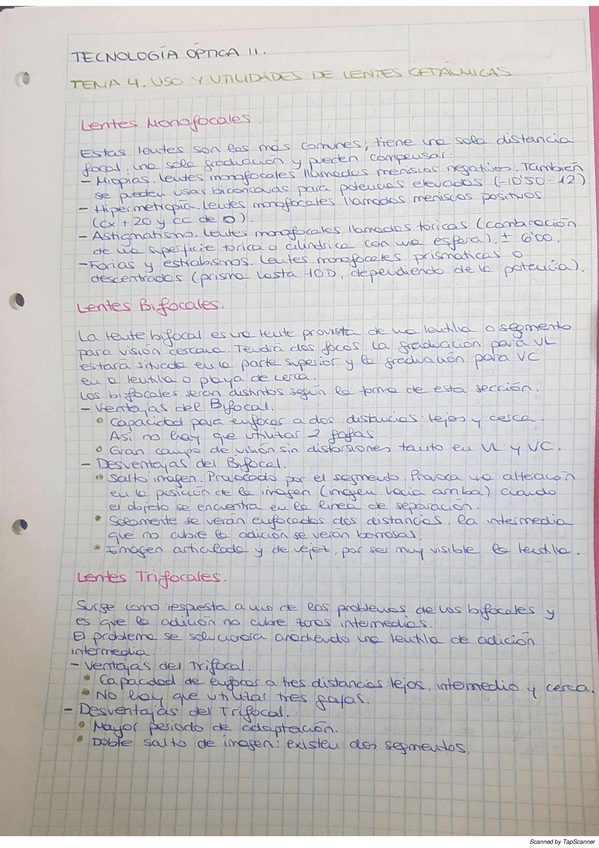 TECNOLOGÍA ÓPTICA II.
TEMA 4. USO Y UTILIDADES DE LENTES OFTÁLMICAS
Lentes Monofocales.
Estas lentes son las más comunes, tiene una sola distancia
focal, una sola graduación y pueden compensar:
- Miopías. Lentes monofocales llamados meniscos negativos. También
se pueden usar bicóncavas para potencias elevadas (-10'50 -12)
- Hipermetropía. Lentes monofocales llamados meniscos positivos
(cx + 20 y cc de 0).
- Astigmatismo. Lentes monofocales llamados tóricas (combinación
de una superficie tórica o cilíndrica con una esfera). ± 6'00.
- Forias y estrabismos. Lentes monofocales prismáticas o
descentrados (prisma hasta 10D, dependiendo de la potencia).
Lentes Bifocales.
La lente bifocal es una lente provista de una lentilla o segmento
para visión cercana. Tendrá dos focos la graduación para VL
estará situada en la parte superior y la graduación para VC
en la lentilla o playa de cerca.
Los bifocales serán distintos según la forma de esta sección.
- Ventajas del Bifocal.
• Capacidad para enfocar a dos distancias: lejos y cerca.
Así no hay que utilizar 2 gafas
• Gran campo de visión sin distorsiones tanto en VL y VC.
- Desventajas del Bifocal.
• Salto imagen. Provocado por el segmento. Provoca una alteración
en la posición de la imagen (imagen hacia arriba) cuando
el objeto se encuentra en la línea de separación.
• Solamente se verán enfocados dos distancias la intermedia
que no cubre la adición se verán borrosas.
• Imagen anticuada y de vejez, por ser muy visible la lentilla.
Lentes Trifocales.
Surge como respuesta a uno de los problemas de los bifocales y
es que la adición no cubre zonas intermedias.
El problema se solucionará añadiendo una lentilla de adición
intermedia.
- Ventajas del Trifocal.
• Capacidad de enfocar a tres distancias lejos, intermedio y cerca.
• No hay que utilizar tres gafas.
- Desventajas del Trifocal.
• Mayor periodo de adaptación.
• Doble salto de imagen: existen dos segmentos.
Scanned by TapScanner